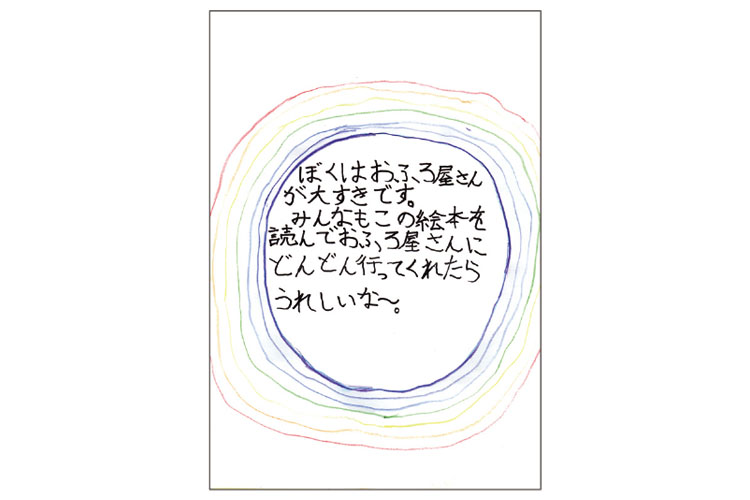 ぼくはおふろ屋さん
が大すきです。
みんなもこの絵本を
読んでおふろ屋さんに
どんどん行ってくれたら
うれしいな〜。